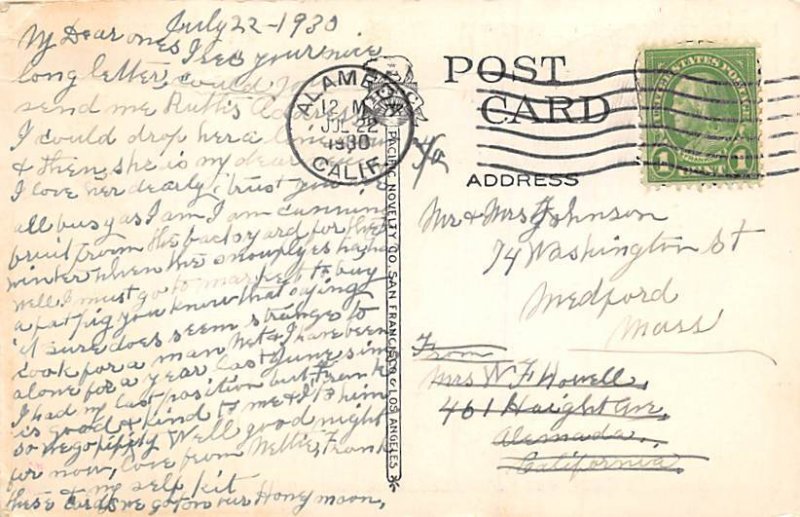 July 22-1930
My Dear ones I rec your nice
long letter, could you
send me Ruth's Address
I could drop her a line now
& then, she is my dear
I love her dearly, trust you r
all busy as I am. I am cunning
fruit from the back yard for the
winter when the snowplyes ha ha
well I must go to market to buy
a fat pig you know that saying
it sure does seem strange to
cook for a man Net & I have been
alone for a year last June, since
I had my last position but Frank
is good & kind to me & I to him
so we go fifty. Well good night
for now, love from Nettie, Frank
& my self Kit
these Cards we got on our Honymoon,
ALAMEDA
12 M
JUL 22
1930
CALIF.
PACIFIC NOVELTY CO. SAN FRANCISCO & LOS ANGELES
POST
CARD
ADDRESS
UNITED STATES POSTAGE
FRANKLIN
1 CENT 1
Mr & Mrs F Johnson
74 Washington St
Medford
Mass
From
Mrs W F Howell,
461 Haight Ave,
Alameda,
California.